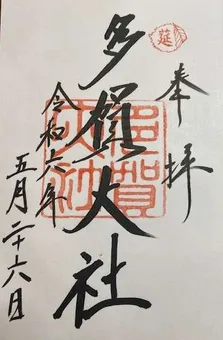 奉拝
莚
多賀大社
多賀大社
令和六年
五月二十六日